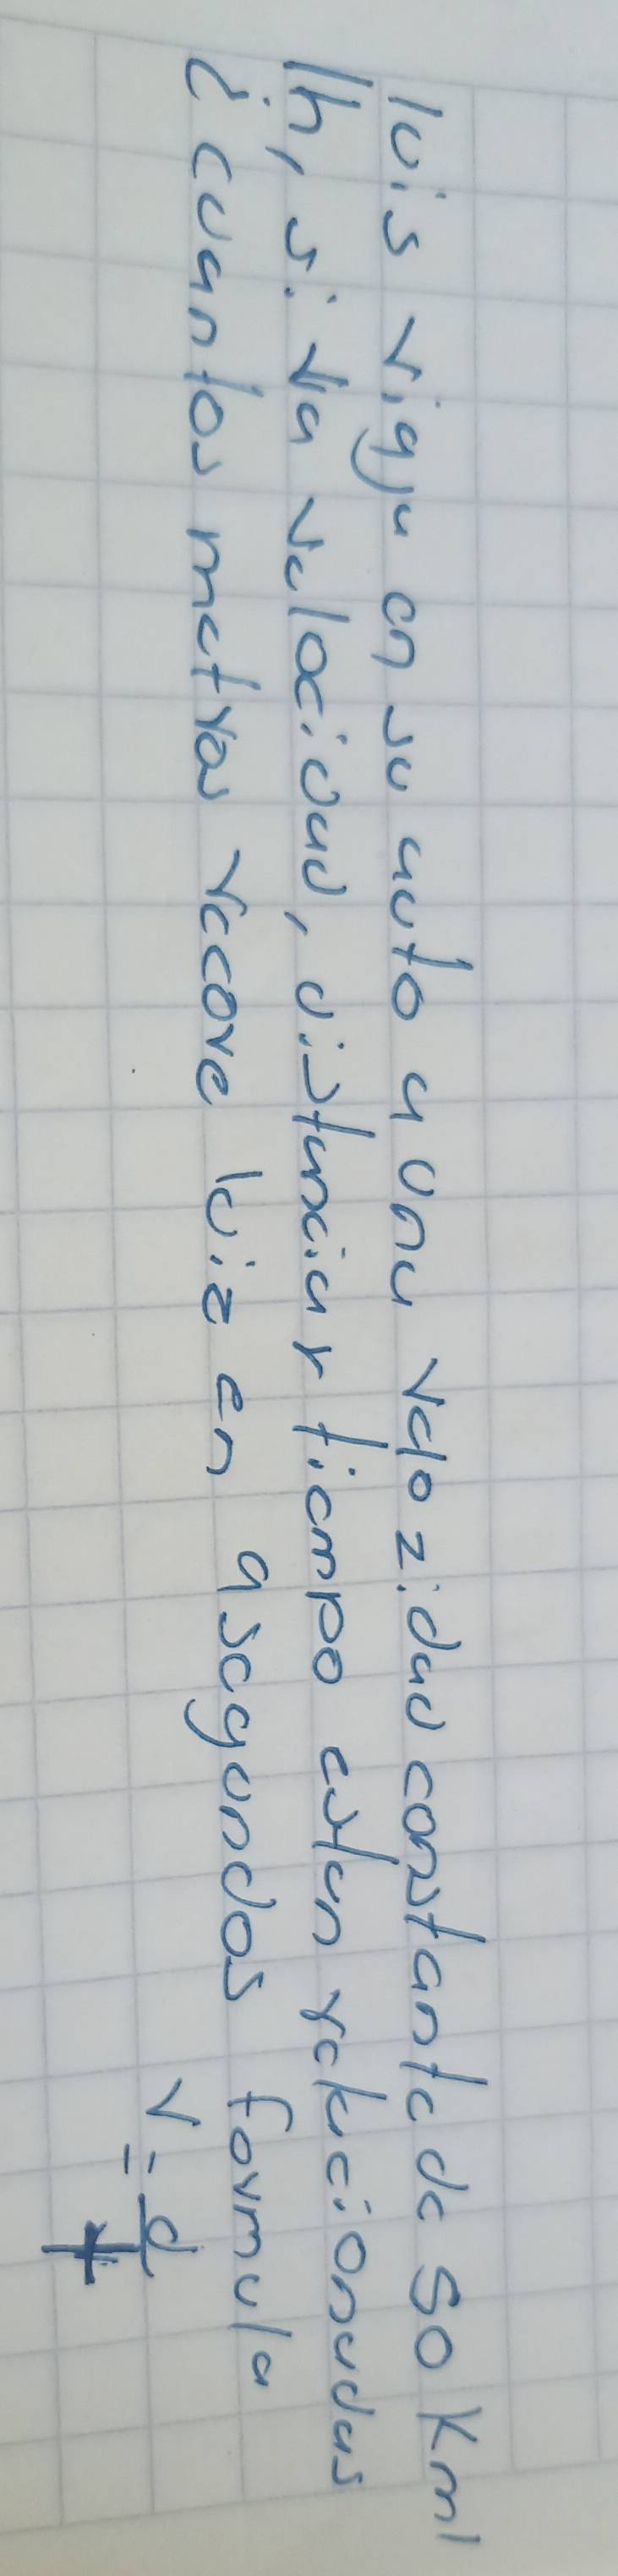 luis viaja en su auto a una velozidad constante de 50 km/
/h, si la velocidad, distancia y tiempo estan relacionadas
¿cuantos metros recore luiz en 9 segundos formula
v = d/t